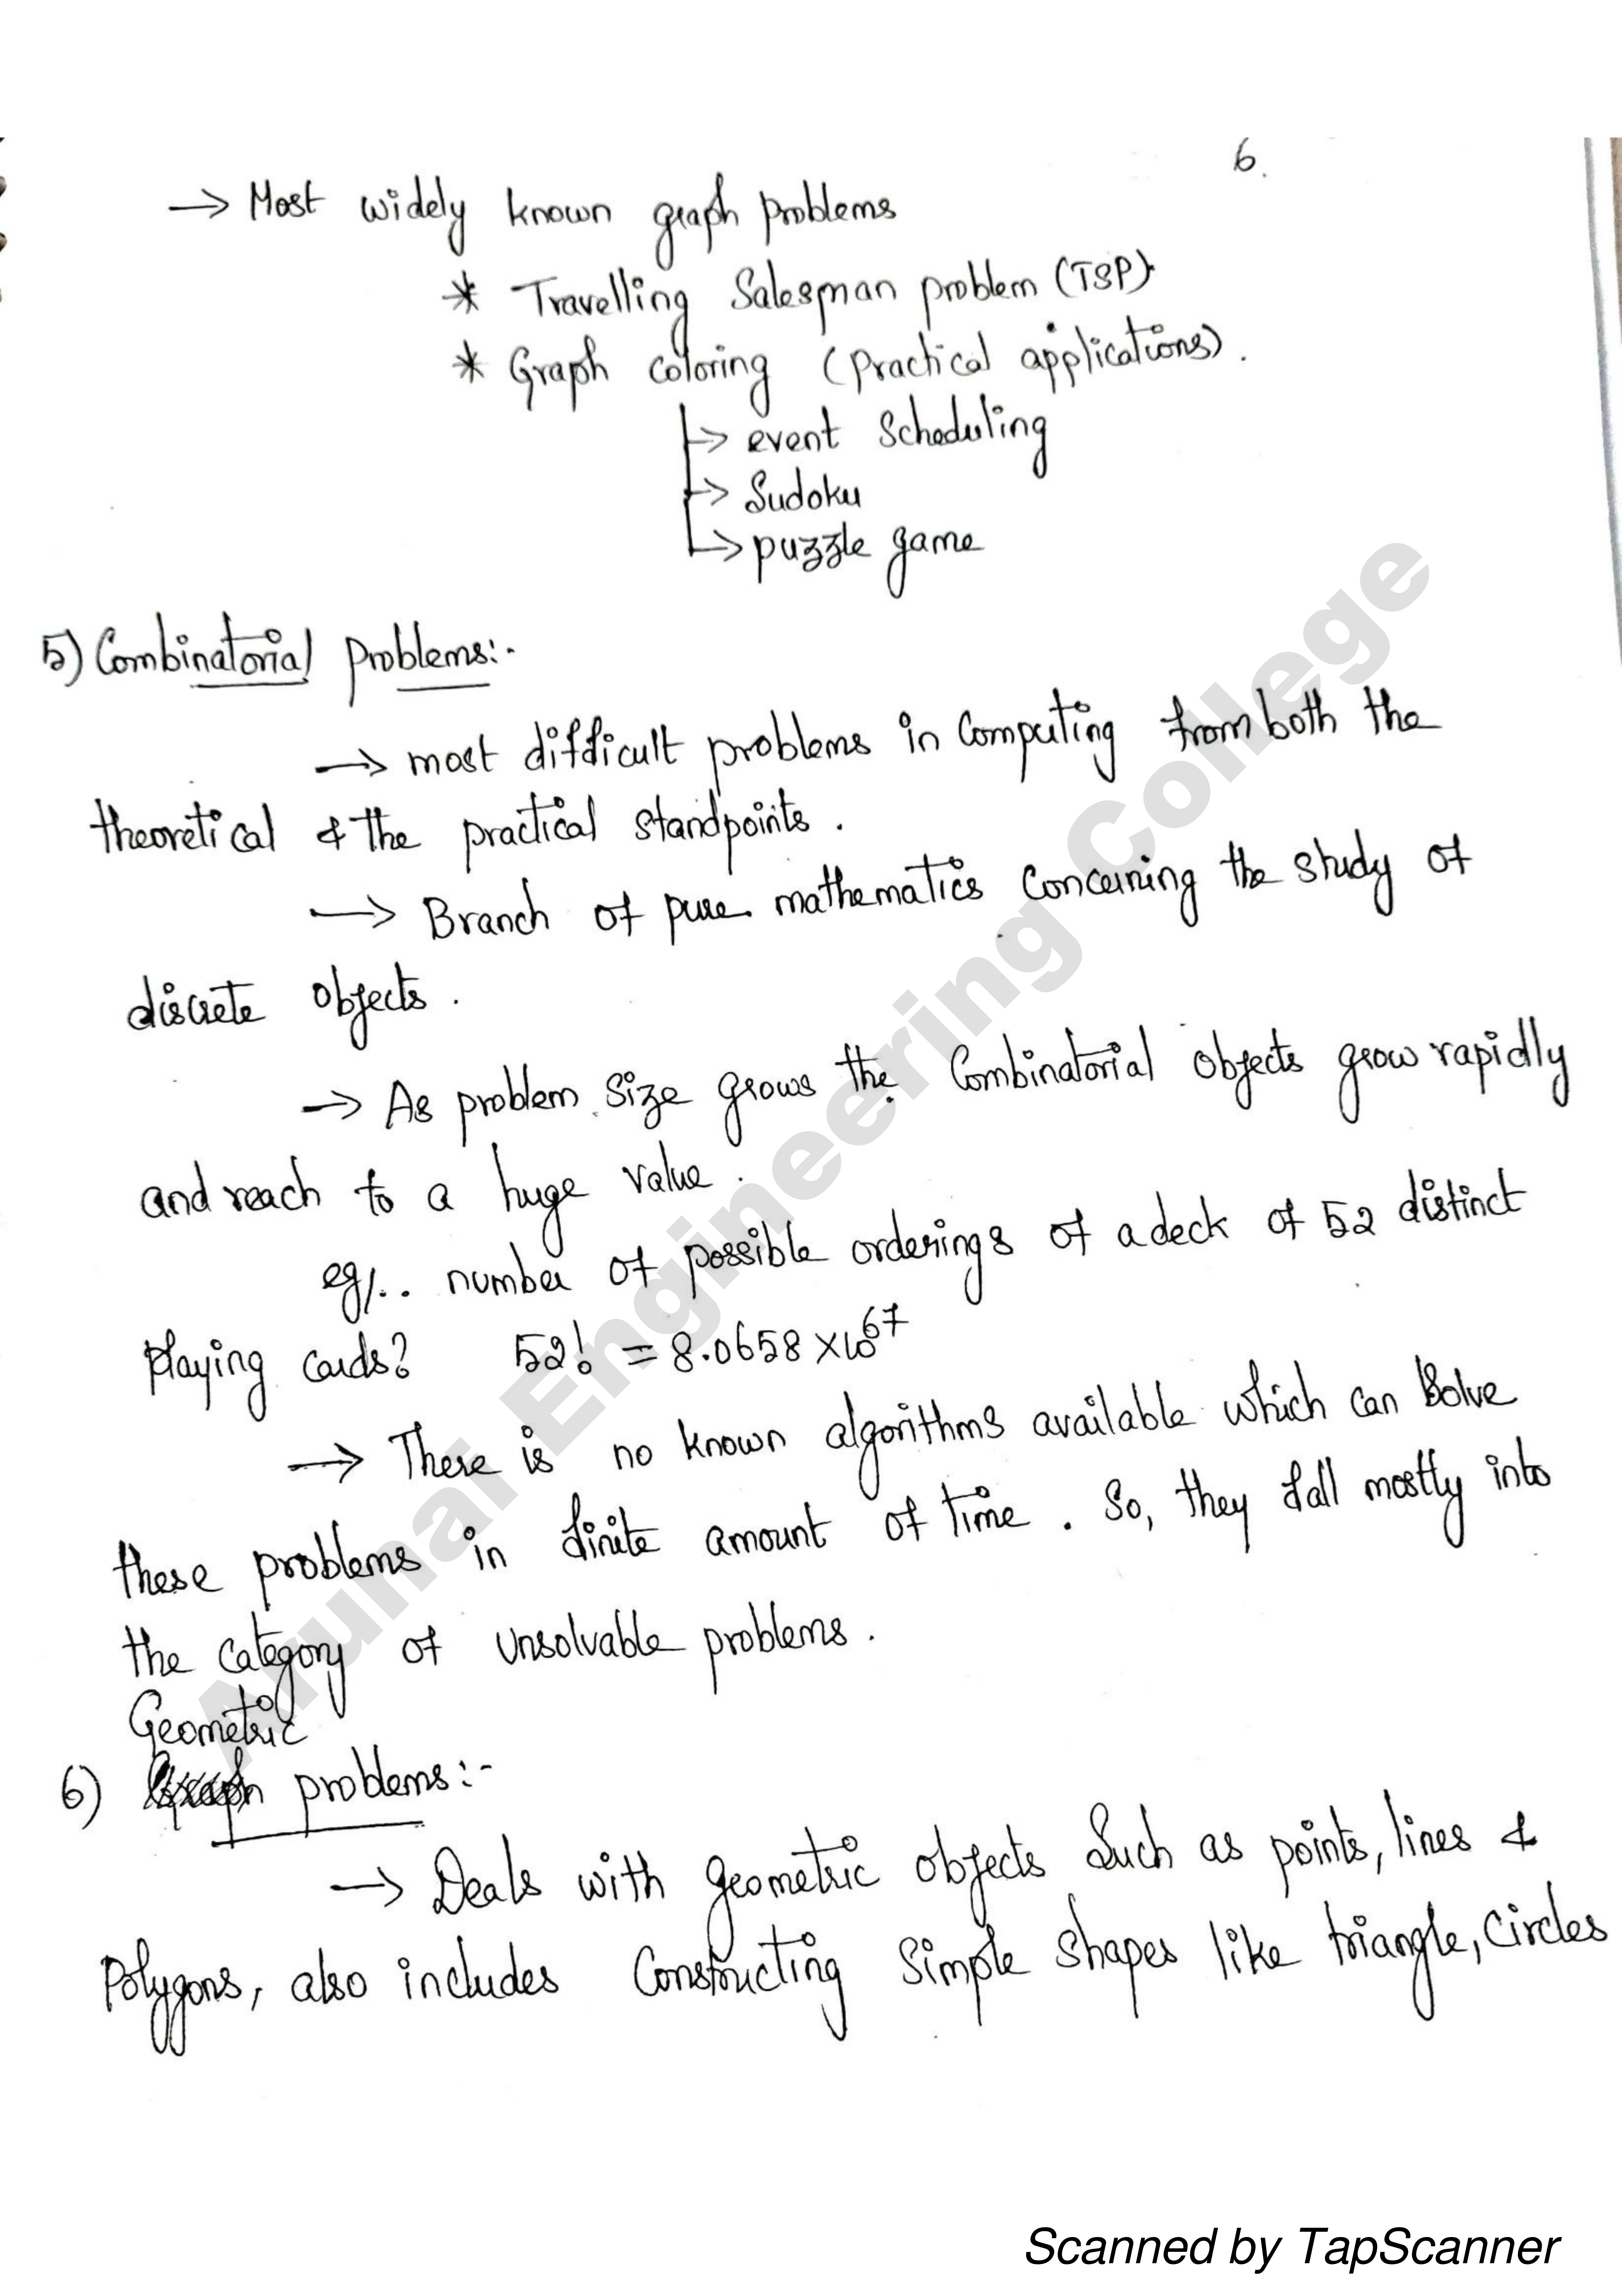 6.
→ Most widely known graph problems
* Travelling Salesman problem (TSP)
* Graph coloring (practical applications).
→ event scheduling
→ Sudoku
→ puzzle game
5) Combinatorial problems:-
→ most difficult problems in Computing from both the
theoretical & the practical standpoints.
→ Branch of pure mathematics concerning the study of
discrete objects.
→ As problem size grows the Combinatorial objects grow rapidly
and reach to a huge value.
eg/.. number of possible orderings of a deck of 52 distinct
playing cards? 52! = 8.0658 ×10^67
→ There is no known algorithms available which can solve
these problems in finite amount of time. So, they fall mostly into
the category of unsolvable problems.
Geometric
6) problems:-
→ Deals with geometric objects such as points, lines &
Polygons, also includes Constructing Simple shapes like triangle, Circles
Arunai Engineering College
Scanned by TapScanner